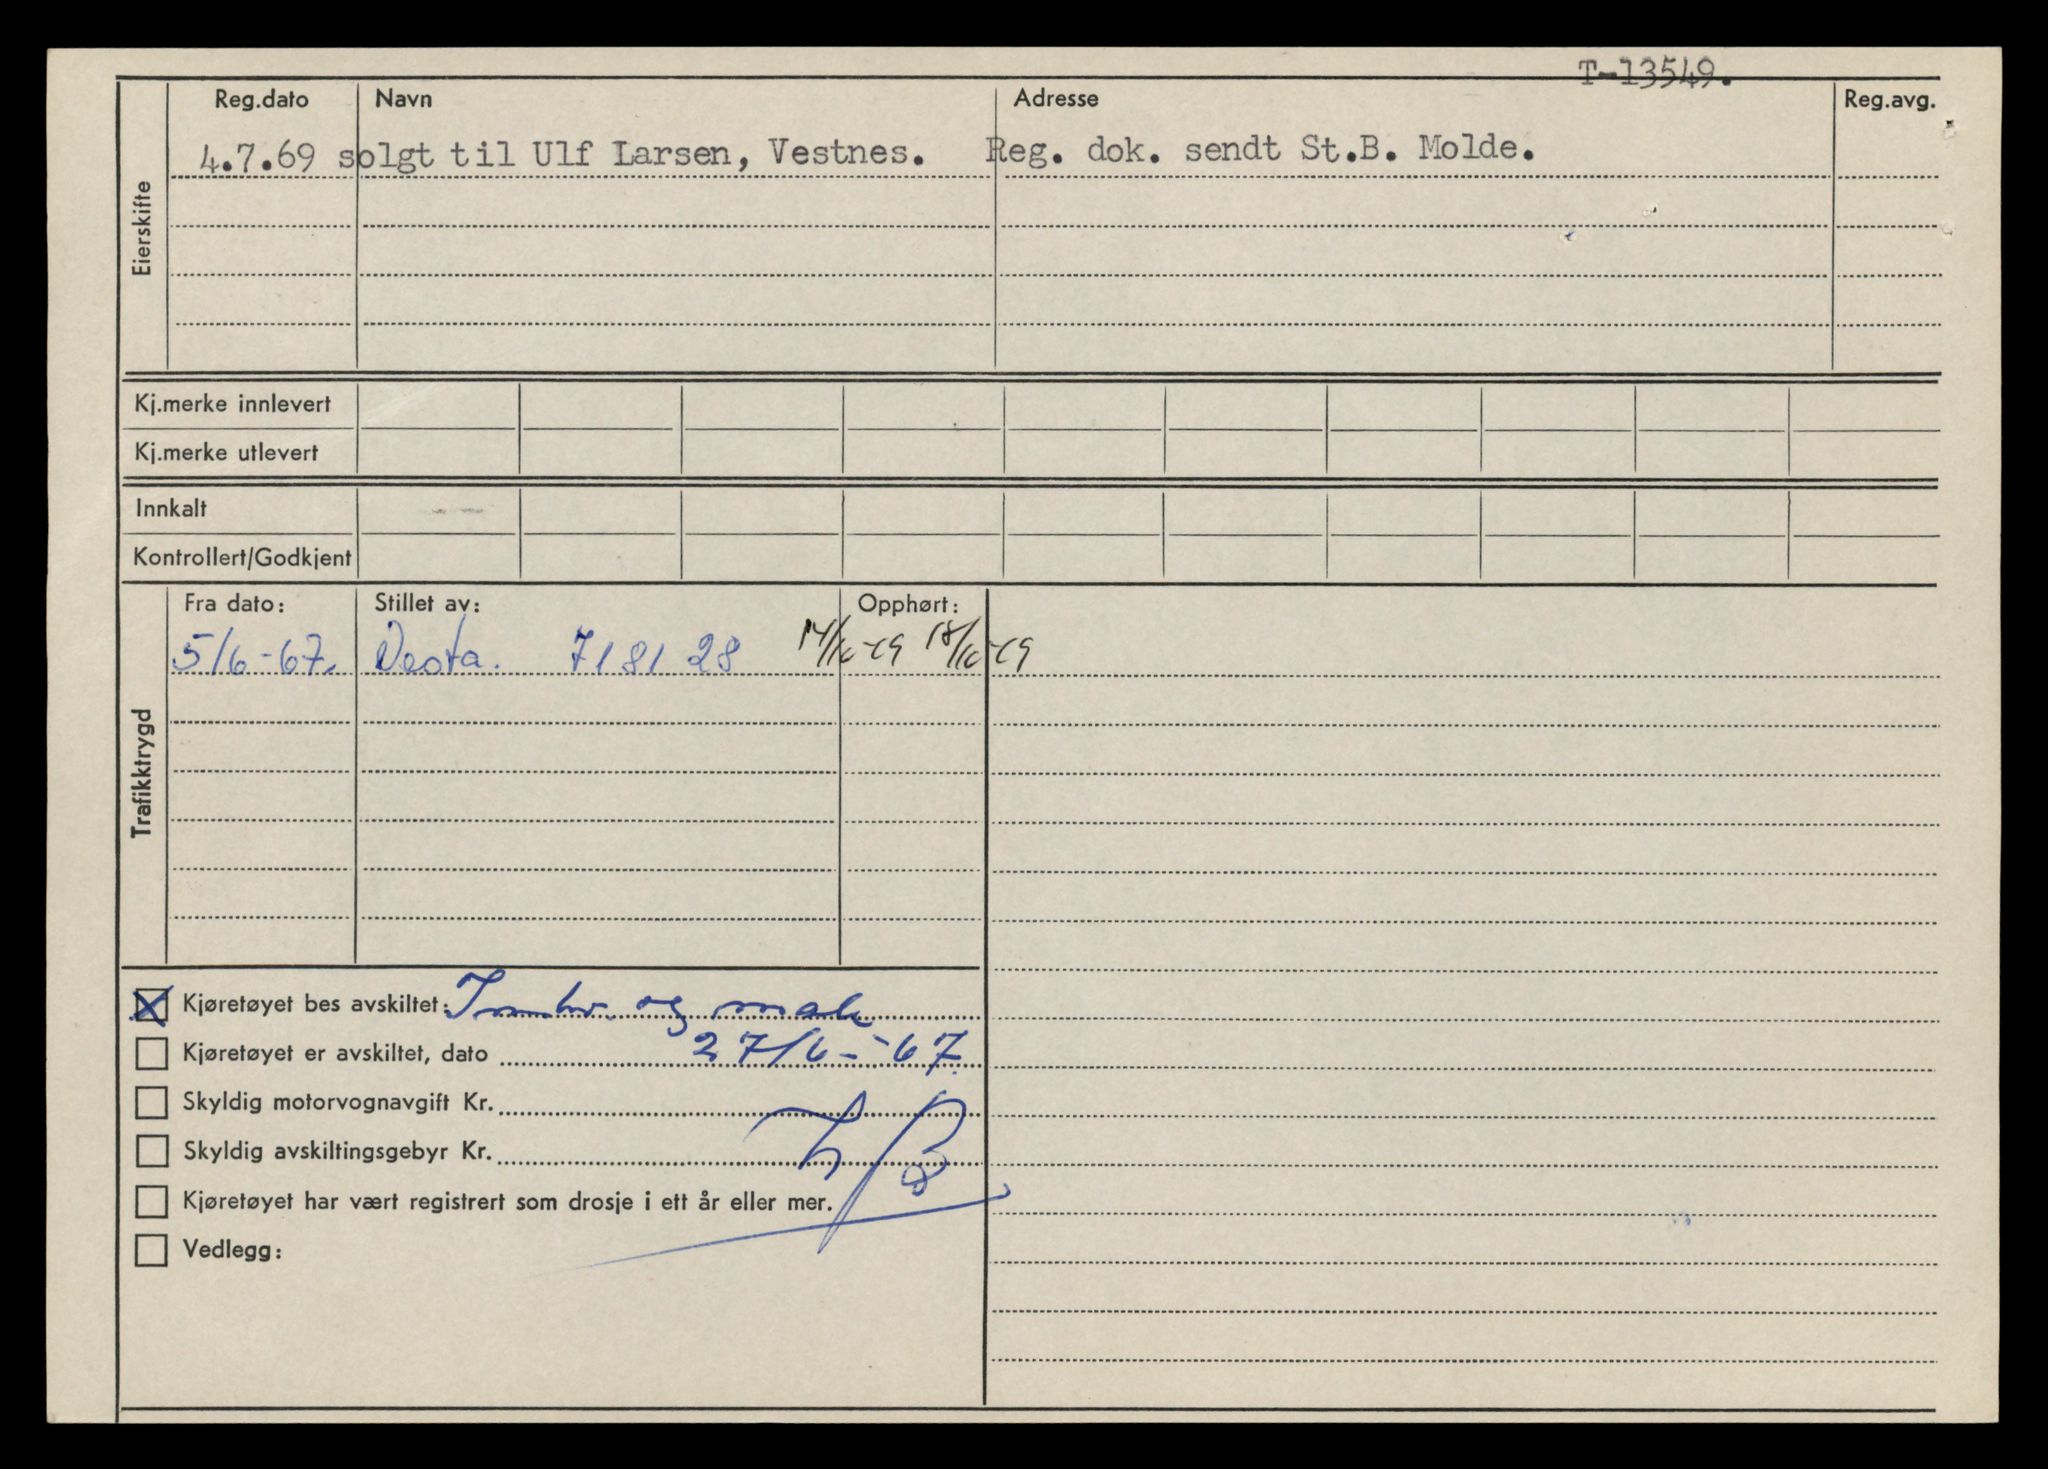 T-13549.
Reg.dato Navn Adresse Reg.avg.
4.7.69 solgt til Ulf Larsen, Vestnes. Reg. dok. sendt St.B. Molde.
Eierskifte
Kj.merke innlevert
Kj.merke utlevert
Innkalt
Kontrollert/Godkjent
Fra dato: Stillet av: Opphørt:
5/6-67. Vesta. 718128
Trafikktrygd
Kjøretøyet bes avskiltet: og
Kjøretøyet er avskiltet, dato 27/6-67
Skyldig motorvognavgift Kr.
Skyldig avskiltingsgebyr Kr.
Kjøretøyet har vært registrert som drosje i ett år eller mer.
Vedlegg: